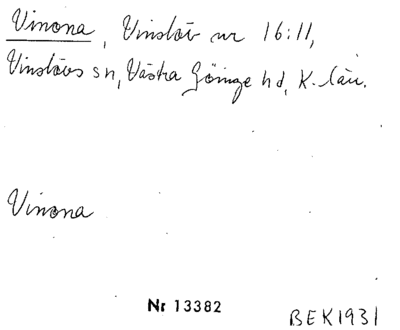 Vinona, Vinslöv nr 16:11,
Vinslövs sn, Västra Göinge hd, K. län.
Vinona
Nr 13382
BEK1931